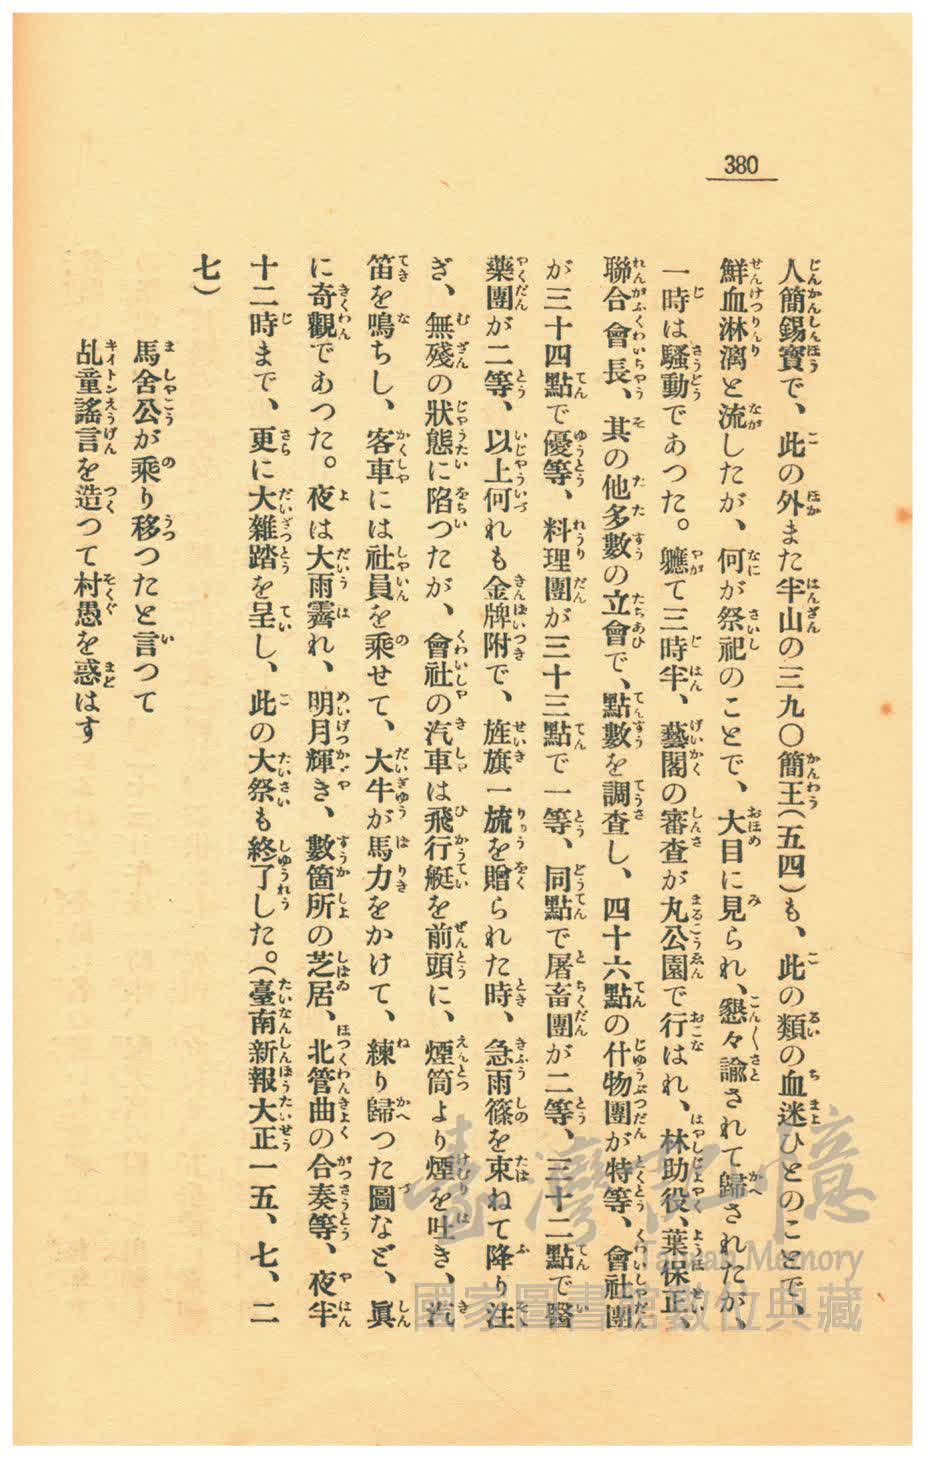 380
人簡錫寶で、此の外また半山の三九〇簡王(五四)も、此の類の血迷ひとのことで、
鮮血淋漓と流したが、何が祭祀のことで、大目に見られ、懇々諭されて歸されたが、
一時は騷動であつた。軈て三時半、藝閣の審査が丸公園で行はれ、林助役、葉保正、
聯合會長、其の他多數の立會で、點數を調査し、四十六點の什物團が特等、會社團
が三十四點で優等、料理團が三十三點で一等、同點で屠畜團が二等、三十二點で醫
藥團が二等、以上何れも金牌附で、旌旗一旒を贈られた時、急雨篠を束ねて降り注
ぎ、無殘の狀態に陷つたが、會社の汽車は飛行艇を前頭に、煙筒より煙を吐き、汽
笛を鳴ちし、客車には社員を乘せて、大牛が馬力をかけて、練り歸つた圖など、眞
に奇觀であつた。夜は大雨霽れ、明月輝き、數箇所の芝居、北管曲の合奏等、夜半
十二時まで、更に大雜踏を呈し、此の大祭も終了した。(臺南新報大正一五、七、二
七)
馬舍公が乘り移つたと言つて
乩童謠言を造つて村愚を惑はす
臺灣記憶
Taiwan Memory
國家圖書館數位典藏